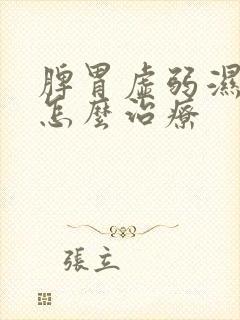 脾胃虛弱濕
怎麼治療
張立